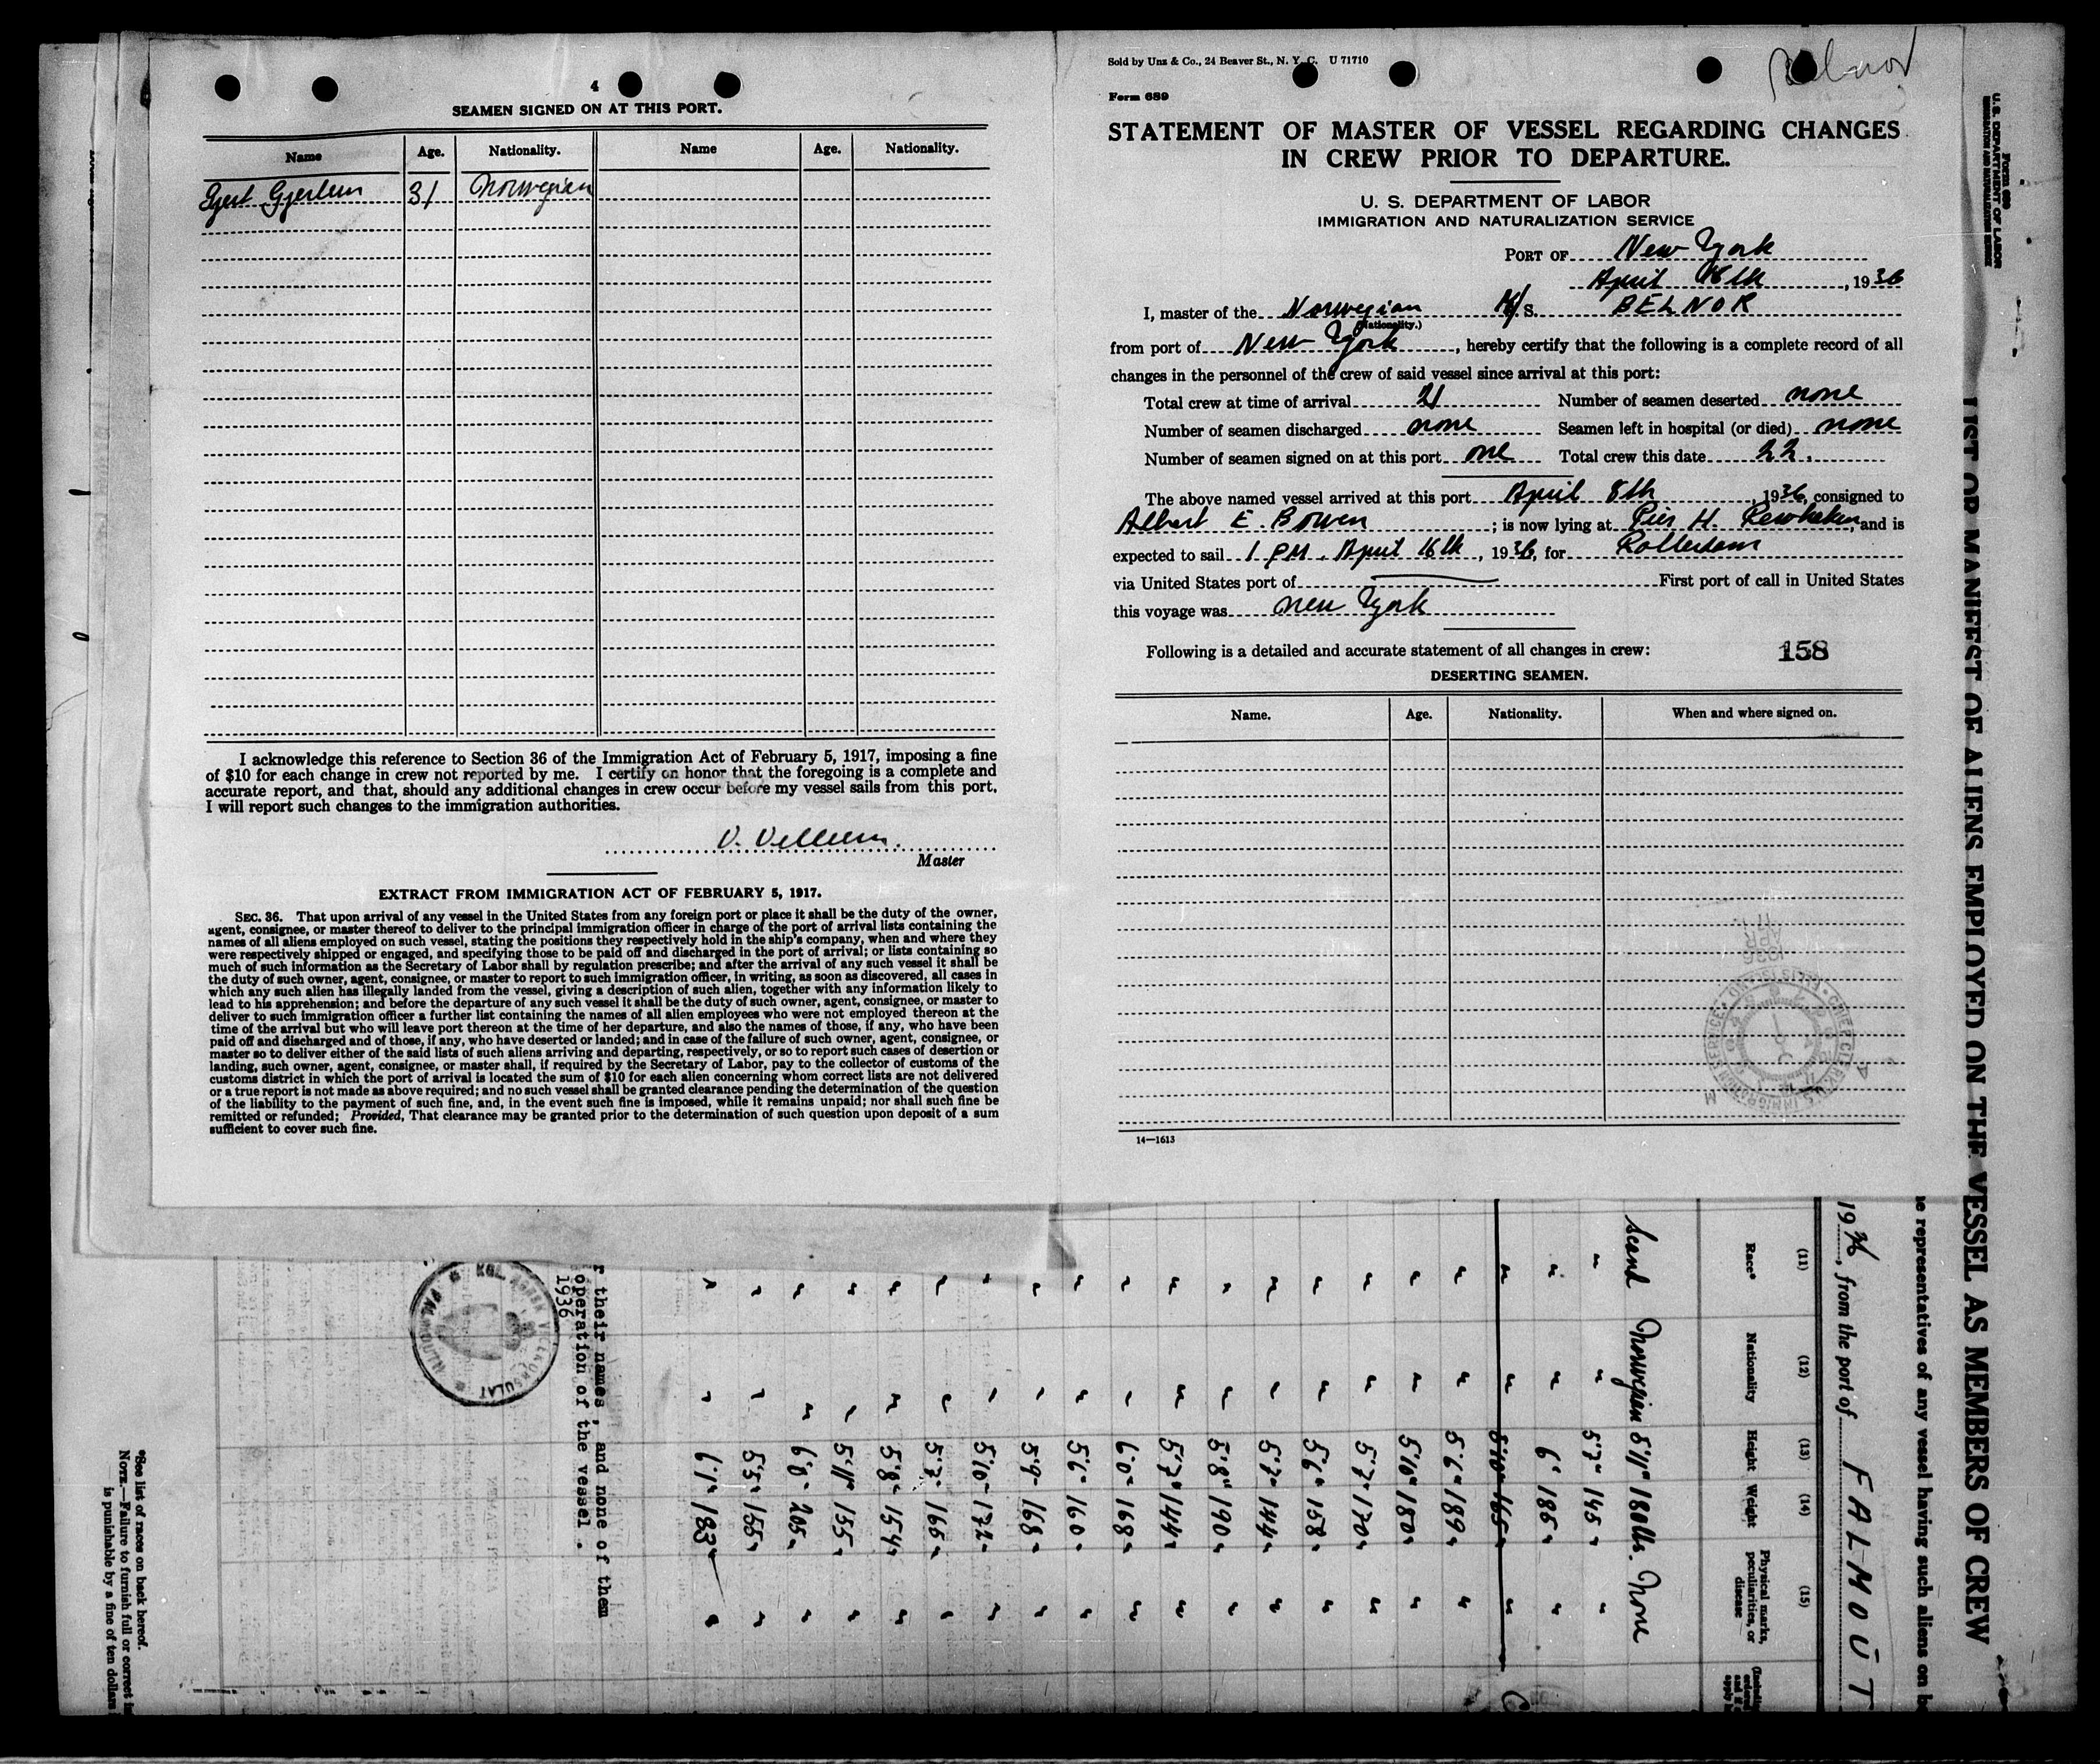 4
SEAMEN SIGNED ON AT THIS PORT.
Name Age. Nationality. Name Age. Nationality.
31 Norwegian
I acknowledge this reference to Section 36 of the Immigration Act of February 5, 1917, imposing a fine
of $10 for each change in crew not reported by me. I certify on honor that the foregoing is a complete and
accurate report, and that, should any additional changes in crew occur before my vessel sails from this port,
I will report such changes to the immigration authorities.
Master
EXTRACT FROM IMMIGRATION ACT OF FEBRUARY 5, 1917.
SEC. 36. That upon arrival of any vessel in the United States from any foreign port or place it shall be the duty of the owner,
agent, consignee, or master thereof to deliver to the principal immigration officer in charge of the port of arrival lists containing the
names of all aliens employed on such vessel, stating the positions they respectively hold in the ship's company, when and where they
were respectively shipped or engaged, and specifying those to be paid off and discharged in the port of arrival; or lists containing so
much of such information as the Secretary of Labor shall by regulation prescribe; and after the arrival of any such vessel it shall be
the duty of such owner, agent, consignee, or master to report to such immigration officer, in writing, as soon as discovered, all cases in
which any such alien has illegally landed from the vessel, giving a description of such alien, together with any information likely to
lead to his apprehension; and before the departure of any such vessel it shall be the duty of such owner, agent, consignee, or master to
deliver to such immigration officer a further list containing the names of all alien employees who were not employed thereon at the
time of the arrival but who will leave port thereon at the time of her departure, and also the names of those, if any, who have been
paid off and discharged and of those, if any, who have deserted or landed; and in case of the failure of such owner, agent, consignee, or
master so to deliver either of the said lists of such aliens arriving and departing, respectively, or so to report such cases of desertion or
landing, such owner, agent, consignee, or master shall, if required by the Secretary of Labor, pay to the collector of customs of the
customs district in which the port of arrival is located the sum of $10 for each alien concerning whom correct lists are not delivered
or a true report is not made as above required; and no such vessel shall be granted clearance pending the determination of the question
of the liability to the payment of such fine, and, in the event such fine is imposed, while it remains unpaid; nor shall such fine be
remitted or refunded; Provided, That clearance may be granted prior to the determination of such question upon deposit of a sum
sufficient to cover such fine.
Sold by Unz & Co., 24 Beaver St., N. Y. C. U 71710
Belnor
Form 689
STATEMENT OF MASTER OF VESSEL REGARDING CHANGES
IN CREW PRIOR TO DEPARTURE.
U. S. DEPARTMENT OF LABOR
IMMIGRATION AND NATURALIZATION SERVICE
PORT OF New York
April 16th, 1936
I, master of the Norwegian M/S. BELNOR
(Nationality.)
from port of New York, hereby certify that the following is a complete record of all
changes in the personnel of the crew of said vessel since arrival at this port:
Total crew at time of arrival 21 Number of seamen deserted none
Number of seamen discharged none Seamen left in hospital (or died) none
Number of seamen signed on at this port one Total crew this date 22.
The above named vessel arrived at this port April 8th, 1936, consigned to
Albert E. Bowen; is now lying at Pier H. and is
expected to sail 1 PM. April 16th, 1936, for Rotterdam
via United States port of First port of call in United States
this voyage was New York
Following is a detailed and accurate statement of all changes in crew: 158
DESERTING SEAMEN.
Name. Age. Nationality. When and where signed on.
14—1613
Form 689
U. S. DEPARTMENT OF LABOR
IMMIGRATION AND NATURALIZATION SERVICE
LIST OR MANIFEST OF ALIENS EMPLOYED ON THE VESSEL AS MEMBERS OF CREW
representatives of any vessel having such aliens on
1936, from the port of FALMOUT
(11) (12) (13) (14) (15)
Race* Nationality Height Weight Physical marks, peculiarities, or disease
Scand Norwegian 5'11" 180lbs. None
" " 5'7" 145 " "
" " 6' 185 " "
" " 5'10" 165 " "
" " 5'6" 189 " "
" " 5'10" 180 " "
" " 5'7" 170 " "
" " 5'6" 158 " "
" " 5'7" 144 " "
" " 5'8" 190 " "
" " 5'7" 144 " "
" " 6'0" 168 " "
" " 5'6" 160 " "
" " 5'9" 168 " "
" " 5'10" 172 " "
" " 5'7" 166 " "
" " 5'8" 154 " "
" " 5'11" 155 " "
" " 6'0" 205 " "
" " 5'5" 155 " "
" " 6'1" 183 " "
r their names, and none of them
operation of the vessel.
1936
KGL. NORSK VICEKONSULAT
FALMOUTH
*See list of races on back hereof.
NOTE.—Failure to furnish full or correct
is punishable by a fine of ten dollars